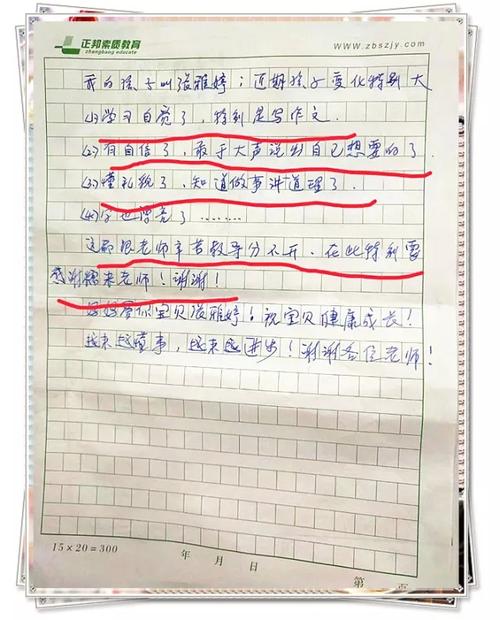 正邦素质教育
zhengbang educate
www.zbszjy.com
我的孩子叫张雅婷；近期孩子变化特别大
(1)学习自觉了，特别是写作文.
(2)有自信了，敢于大声说出自己想要的了.
(3)懂礼貌了，知道做事讲道理了.
(4)字也漂亮了……
这都跟老师辛苦教导分不开.在此特别要
感谢 老师！谢谢！
宝贝张雅婷；祝宝贝健康成长！
越来越懂事，越来越进步！谢谢各位老师！
15×20=300
年 月 日
第 页